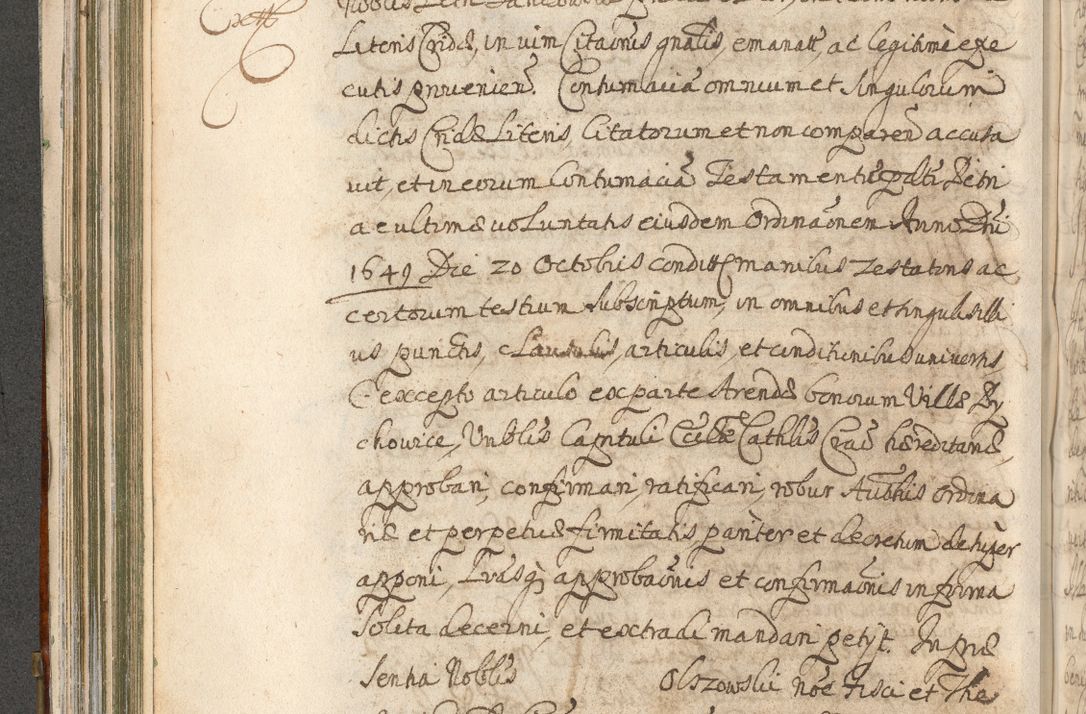 Literis Cridæ, in vim Citaōnis gnãlis, emanatt, ac legitimè exe
cutis proveniēn. Contumaciã omnium et singulorum
dictis Cridæ Literis, Citatorum et non comparēn accusa
vit, et in eorum Contumaciã Testamentũ pdti Petri
ac ultimæ voluntatis eiusdem Ordinaõnem Anno Dñi
1649 Die 20 Octobris condit manibus Testatoris ac
certorum testium subscriptum, in omnibus et singulis illi
us punctis, clausulis, articulis, et conditionibus universis,
excepto articulo ex parte Arendæ bonorum Villæ By
chowice, Vnblis Capituli Ecclæ Cathlis Crac hæreditariæ,
approbari, confirmari, ratificari, robur Authis ordina
riæ et perpetuæ firmitatis pariter et decretum desuper
apponi, Lrasq̃ approbaõnis et confirmaõnis in forma
solita decerni, et extradi mandari petijt. In præ
sentia Nobilis Olszowski Nõe Fisci et The